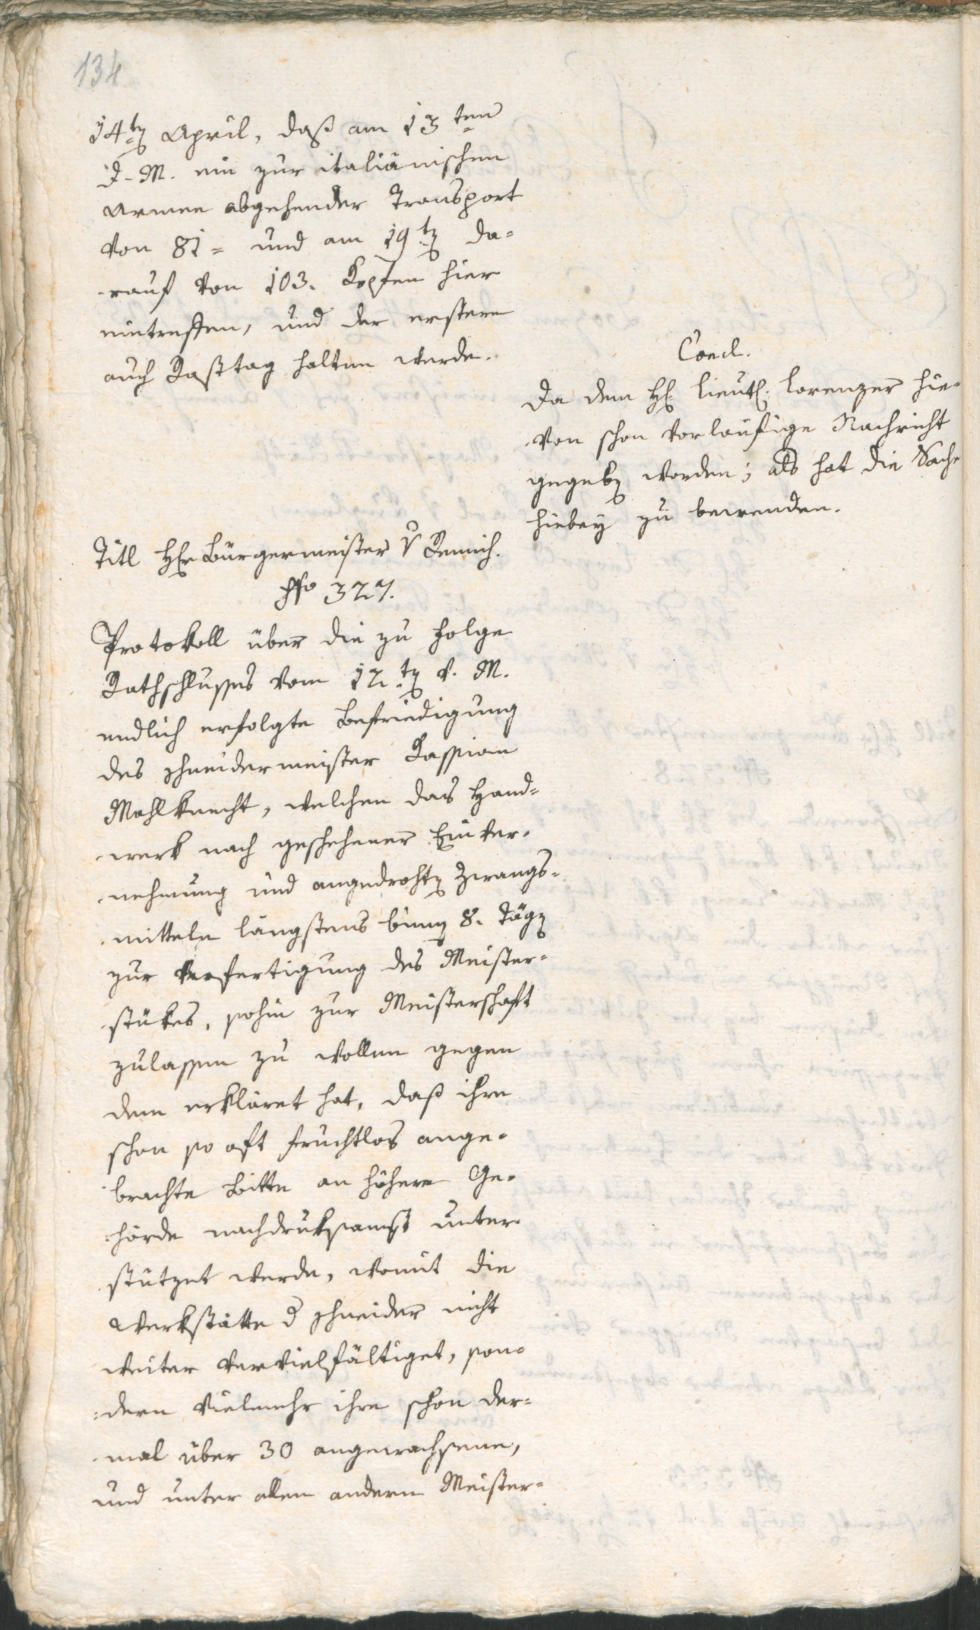 134
14ten April, daß am 13ten
d. M. ein zur italiänischen
Armee abgehender Transport
von 81= und am 19ten da=
rauf von 103. Köpfen hier
eintreffen, und der erstere
auch Rasttag halten werde.
Concl.
Da dem H: Lieut: Lorenzer hie=
von schon vorläufige Nachricht
gegeben worden; als hat die Sache
hiebey zu bewenden.
Titl Hr Bürgermeister v Remich.
No 327.
Protokoll über die zu Folge
Rathschlusses vom 12ten v. M.
endlich erfolgte Befriedigung
des Schneidermeister Kassian
Mahlknecht, welchen das Hand=
werk nach geschehener Einver=
nehmung und angedrohten Zwangs=
mitteln längstens binnen 8. Tägen
zur Verfertigung des Meister=
stükes, sohin zur Meisterschaft
zulassen zu wollen gegen
dem erkläret hat, daß ihre
schon so oft fruchtlos ange=
brachte Bitte an höhere Ge=
hörde nachdruksamst unter=
stützet werde, womit die
Werkstätte d Schneider nicht
weiter vervielfältiget, son=
dern vielmehr ihre schon der=
mal über 30 angewachsene,
und unter allen andern Meister=